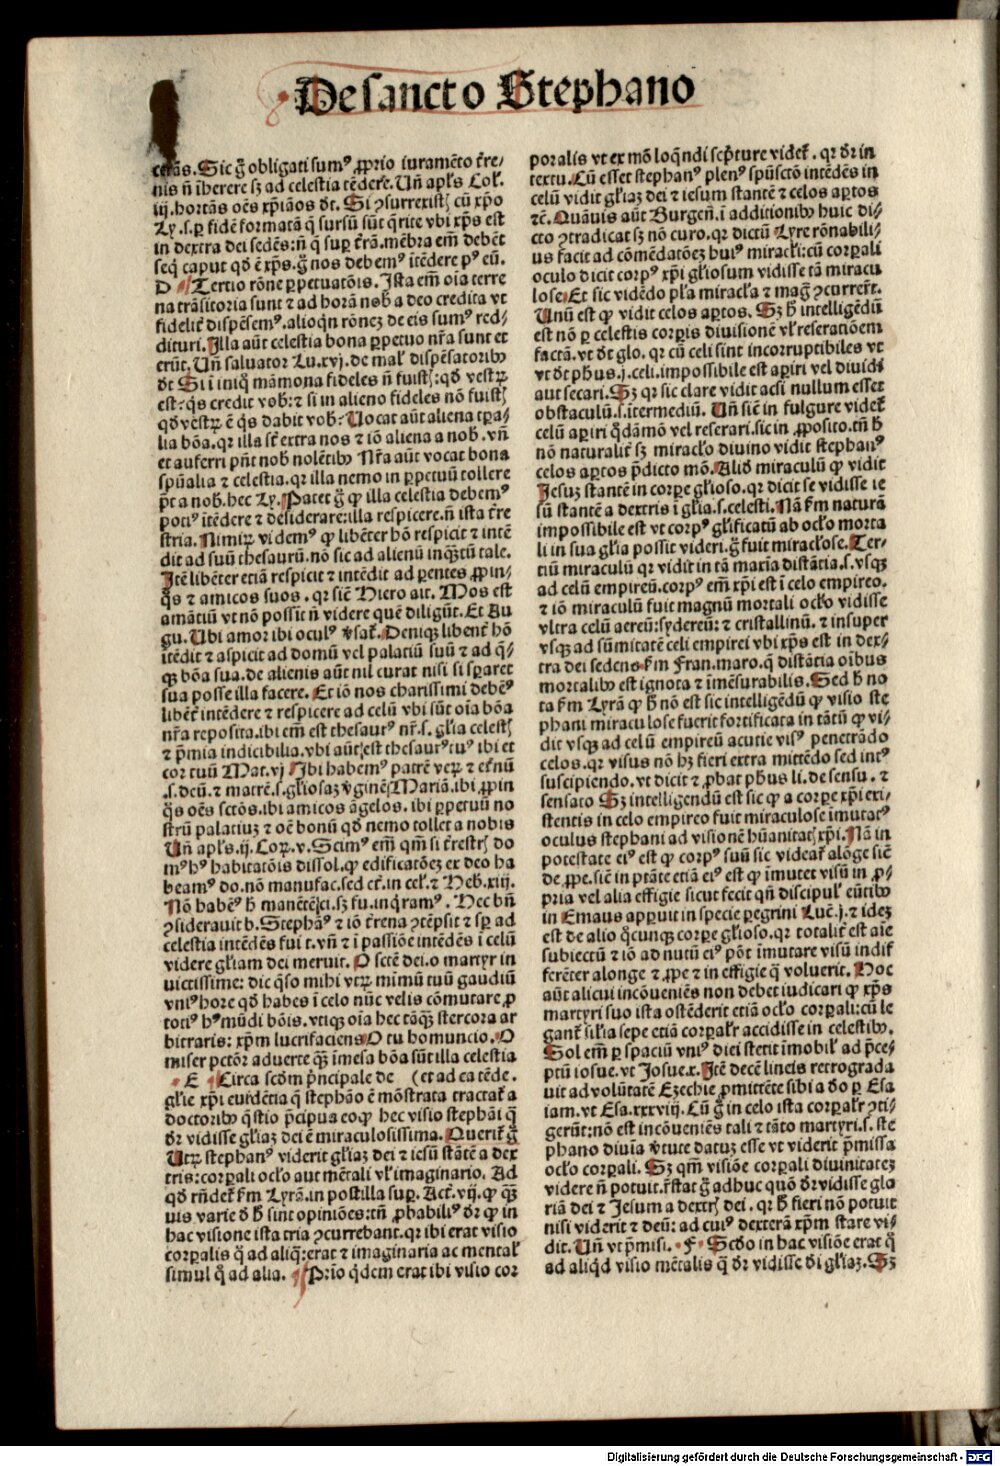 De sancto Stephano
ceras. Sic g̃ obligati sumꝰ ꝓprio iuramẽto t̃re⸗
nis ñ ĩherere sꝫ ad celestia tẽdere. Uñ apl's Col'.
iij. hortãs oẽs xp̃iãos dt. Si ↄsurrexist' cũ xp̃o
Ly. s. ꝑ fidẽ formatã q̃ sursũ sũt q̃rite vbi xp̃s est
in dextra dei sedẽs: ñ q̃ suꝑ t̃rã. mẽbra em̃ debẽt
seq̃ caput qd' ẽ xp̃s. g̃ nos debemꝰ ĩtẽdere pꝰ eũ.
D Tertio rõne ꝑpetuatõis. Ista em̃ oĩa terre
na trãsitoria sunt ⁊ ad horã nob̃ a deo credita vt
fidelit̃ dispẽsemꝰ. alioq̃n rõneꝫ de eis sumꝰ red⸗
dituri. Illa aũt celestia bona ꝑpetuo nr̃a sunt et
erũt. Uñ saluator Lu. xvj. de mal' dispẽsatoribꝰ
dt Si ĩ iniq̃ mãmona fideles ñ fuist': qd' vestꝝ
est: q̃s credit vob': ⁊ si in alieno fideles nõ fuist'
qd' vestꝝ ẽ q̃s dabit vob': Uocat aũt aliena tꝑa⸗
lia bõa. qr illa st̃ extra nos ⁊ iõ aliena a nob. vñ
et auferri pñt nob̃ nolẽtibꝰ Nr̃a aũt vocat bona
spũalia ⁊ celestia. qr illa nemo in ꝑpetuũ tollere
p̃t a nob. hec Ly. Patet g̃ ꝙ illa celestia debemꝰ
potiꝰ ĩtẽdere ⁊ desiderare: illa respicere. ñ ista t̃re
stria. Nimiꝝ videmꝰ ꝙ libẽter hõ respicit ⁊ intẽ
dit ad suũ thesaurũ. nõ sic ad alienũ inq̃ꝫtũ tale.
Itẽ libẽter etiã respicit ⁊ intẽdit ad ꝑentes ꝓpin⸗
q̃s ⁊ amicos suos. qr sic̃ Hiero ait. Mos est
amãtiũ vt nõ possĩt ñ videre quẽ diligũt. Et Au
gu. Ubi amor ibi oculꝰ ṽsat̃. Deniqꝫ libent̃ hõ
ĩtẽdit ⁊ aspicit ad domũ vel palatiũ suũ ⁊ ad q̃⸗
qꝫ bõa sua. de alienis aũt nil curat nisi si sꝑaret
sua posse illa facere. Et iõ nos charissimi debẽꝰ
libẽt̃ intẽdere ⁊ respicere ad celũ vbi sũt oĩa bõa
nr̃a reposita. ibi em̃ est thesaurꝰ nr̃. s. gl'ia celest'
⁊ p̃mia indicibilia. vbi aũt est thesaurꝰ tuꝰ ibi et
cor tuũ Mat. vj Ibi habemꝰ patrẽ veꝝ ⁊ et̃nũ
.s. deũ. ⁊ matrẽ. s. gl'iosaꝫ ṽginẽ Mariã. ibi ꝓpin
q̃s oẽs sctõs. ibi amicos ãgelos. ibi ꝑpetuũ no
strũ palatiuꝫ ⁊ oẽ bonũ qd' nemo tollet a nobis
Uñ apl's. ij. Coꝝ. v. Scimꝰ em̃ qm̃ si t̃restr' do
mꝰ hꝰ habitatõis dissol. ꝙ edificatõeꝫ ex deo ha
beamꝰ do. nõ manufac. sed et̃. in cel'. ⁊ Heb. xiij.
Nõ habẽꝰ h̃ manẽtẽ ci. sꝫ fu. inq̃ramꝰ. Hec bñ
ↄsiderauit b. Stephãꝰ ⁊ iõ t̃rena ↄtẽpsit ⁊ sꝑ ad
celestia intẽdẽs fuit. vñ ⁊ ĩ passiõe intẽdẽs ĩ celũ
videre gl'iam dei meruit. O sctẽ dei. o martyr in
uictissime: dic q̃so mihi vtꝝ mimũ tuũ gaudiũ
vniꝰ hore qd' habes ĩ celo nũc velis cõmutare ꝓ
totiꝰ hꝰ mũdi bõis. vtiqꝫ oĩa hec tãqꝫ stercora ar
bitraris: xp̃m lucrifaciens O tu homuncio. O
miser pctõr aduerte qꝫ ĩmẽsa bõa sũt illa celestia
E Circa scd'm p̃ncipale de (et ad ea tẽde.
gl'ie xp̃i euidẽtia q̃ stephão ẽ mõstrata tractat̃ a
doctoribꝰ q̃stio p̃cipua eo ꝙ hec visio stephãi q̃
dr̃ vidisse gl'iaꝫ dei ẽ miraculosissima. Querit̃ g̃
Utꝝ stephanꝰ viderit gl'iaꝫ dei ⁊ iesũ stãtẽ a dex
tris: corꝑali oclo aut mẽtali vl' imaginario. Ad
qd' rñdet̃ s'm Lyrã. in postilla suꝑ. Act̃. vij. ꝙ qꝫ
uis varie d' h̃ sint opiniões: tñ ꝓbabiliꝰ dr̃ ꝙ in
hac visione ista tria ↄcurrebant. qr ibi erat visio
corꝑalis q̃ ad aliq̃: erat ⁊ imaginaria ac mental'
simul q̃ ad alia. Prĩo q̃dem erat ibi visio cor
poralis vt ex mõ loq̃ndi sc'pture videt̃. qr dr̃ in
textu. Cũ esset stephanꝰ plenꝰ spũsctõ intẽdẽs in
celũ vidit gl'iaꝫ dei ⁊ iesum stantẽ ⁊ celos aꝑtos
⁊c̃. Quãuis aũt Burgeñ. ĩ additionibꝰ huic di⸗
cto ↄtradicat sꝫ nõ curo. qr dictũ Lyre rõnabili⸗
us facit ad cõmẽdatõeꝫ huiꝰ miracl'i: cũ corꝑali
oculo dicit corpꝰ xp̃i gl'iosum vidisse tã miracu
lose. Et sic vidẽdo pl'a miracl'a ⁊ mag̃ ↄcurrer̃t.
Unũ est ꝙ vidit celos aꝑtos. Sꝫ h̃ intelligẽdũ
est nõ ꝑ celestis corꝑis diuisionẽ vl' reseratiõem
factã. vt dt glo. qr cũ celi sint incorruptibiles vt
vt dt pħus. j. celi. impossibile est aꝑiri vel diuidi
aut secari. Sꝫ qr sic clare vidit acsi nullum esset
obstaculũ. s. ĩtermediũ. Uñ sic̃ in fulgure videt̃
celũ aꝑiri q̃dãmõ vel reserari. sic in ꝓposito. tñ h̃
nõ naturalit̃ sꝫ miracl'o diuino vidit stephanꝰ
celos aꝑtos p̃dicto mõ. Aliđ miraculũ ꝙ vidit
Iesuꝫ stantẽ in corꝑe gl'ioso. qr dicit se vidisse ie
sũ stantẽ a dextris ĩ gl'ia. s. celesti. Nã s'm naturã
impossibile est vt corpꝰ gl'ificatũ ab ocl'o morta
li in sua gl'ia possit videri. g̃ fuit miracl'ose. Ter⸗
tiũ miraculũ qr vidit in tã maxĩa distãtia. s. vsqꝫ
ad celum empireũ. corpꝰ em̃ xp̃i est ĩ celo empireo.
⁊ iõ miraculũ fuit magnũ mortali ocl'o vidisse
vltra celũ aereũ: sydereũ: ⁊ cristallinũ. ⁊ insuper
vsqꝫ ad sũmitatẽ celi empirei vbi xp̃s est in dex⸗
tra dei sedens s'm Fran. maro. q̃ distãtia oĩbus
mortalibꝰ est ignota ⁊ ĩmẽsurabilis. Sed h̃ no
ta s'm Lyrã ꝙ h̃ nõ est sic intelligẽdũ ꝙ visio ste
phani miraculose fuerit fortificata in tãtũ ꝙ vi⸗
dit vsqꝫ ad celũ empireũ acutie visꝰ penetrãdo
celos. qr visus nõ hꝫ fieri extra mittẽdo sed intꝰ
suscipiendo. vt dicit ⁊ ꝓbat pħus li. de sensu. ⁊
sensato Sꝫ intelligendũ est sic ꝙ a corꝑe xp̃i exi⸗
stentis in celo empireo fuit miraculose ĩmutatꝰ
oculus stephani ad visionẽ hũanitat' xp̃i. Nã in
potestate eiꝰ est ꝙ corpꝰ suũ sic videat̃ alõge sic̃
de ꝓpe. sic̃ in ptãte etiã eiꝰ est ꝙ ĩmutet visũ in ꝓ⸗
pria vel alia effigie sicut fecit qñ discipul' eũtibꝰ
in Emaus apꝑuit in specie peregrini Luc̃. j. ⁊ ideꝫ
est de alio q̃cunqꝫ corꝑe gl'ioso. qr totalit̃ est aĩe
subiectũ ⁊ iõ ad nutũ eiꝰ põt ĩmutare visũ indif
ferẽter alonge ⁊ ꝓpe ⁊ in effigie q̃ voluerit. Hoc
aũt alicui incõueniẽs non debet iudicari ꝙ xp̃s
martyri suo ista ostẽderit etiã ocl'o corꝑali: cũ le
gant̃ sil'ia sepe etiã corꝑalr̃ accidisse in celestibꝰ.
Sol em̃ ꝑ spaciũ vniꝰ diei stetit ĩmobil' ad p̃ce⸗
ptũ iosue. vt Josue. x. Itẽ decẽ lineis retrograda
uit ad volũtatẽ Ezechie ꝓmittẽte sibi a do ꝑ Esa
iam. vt Esa. xxxviij. Cũ g̃ in celo ista corꝑalr̃ ↄti⸗
gerũt: nõ est incõueniẽs tali ⁊ tãto martyri. s. ste
phano diuĩa ṽtute datuꝫ esse vt viderit p̃missa
ocl'o corꝑali. Sꝫ qm̃ visiõe corꝑali diuinitateꝫ
videre ñ potuit. r̃stat g̃ adhuc quõ dr̃ vidisse glo
riã dei ⁊ Jesum a dextr' dei. qr h̃ fieri nõ potuit
nisi viderit ⁊ deũ: ad cuiꝰ dexterã xp̃m stare vi⸗
dit. Uñ vt p̃misi. F Scđo in hac visiõe erat q̃
ad aliq̃d visio mẽtalis q̃ dr̃ vidisse di gl'iaꝫ. Sꝫ
Digitalisierung gefördert durch die Deutsche Forschungsgemeinschaft - DFG